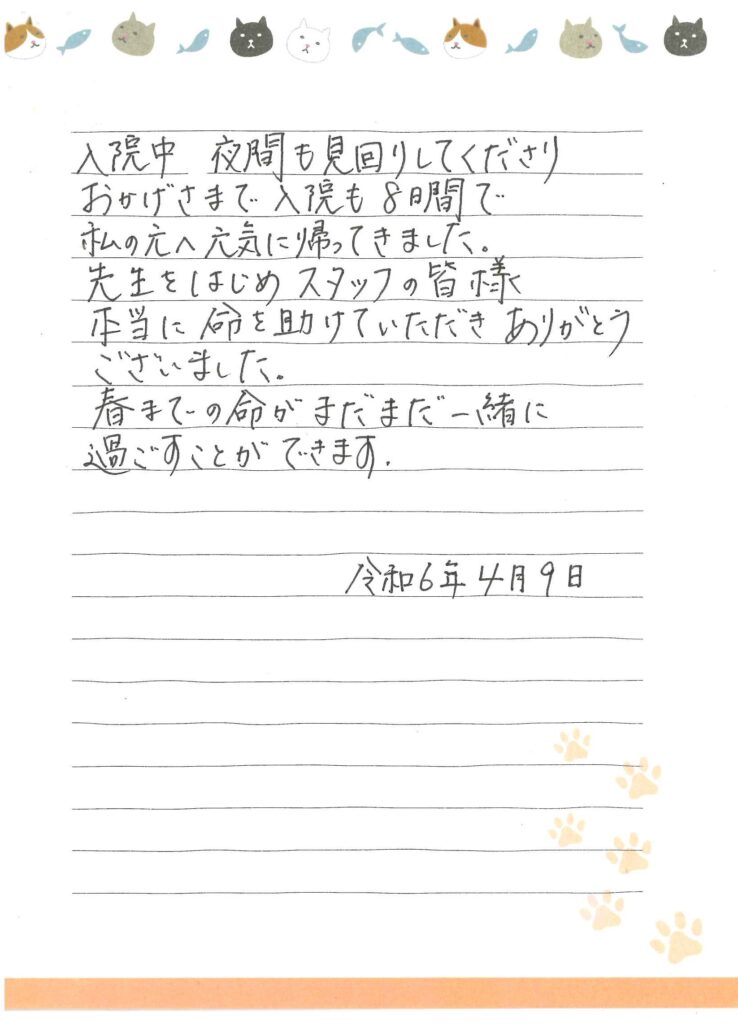 入院中 夜間も見回りしてくださり
おかげさまで 入院も 8日間で
私の元へ元気に帰ってきました。
先生をはじめ スタッフの皆様
本当に 命を助けていただき ありがとう
ございました。
春までの命が まだまだ 一緒に
過ごすことが できます.
令和6年4月9日